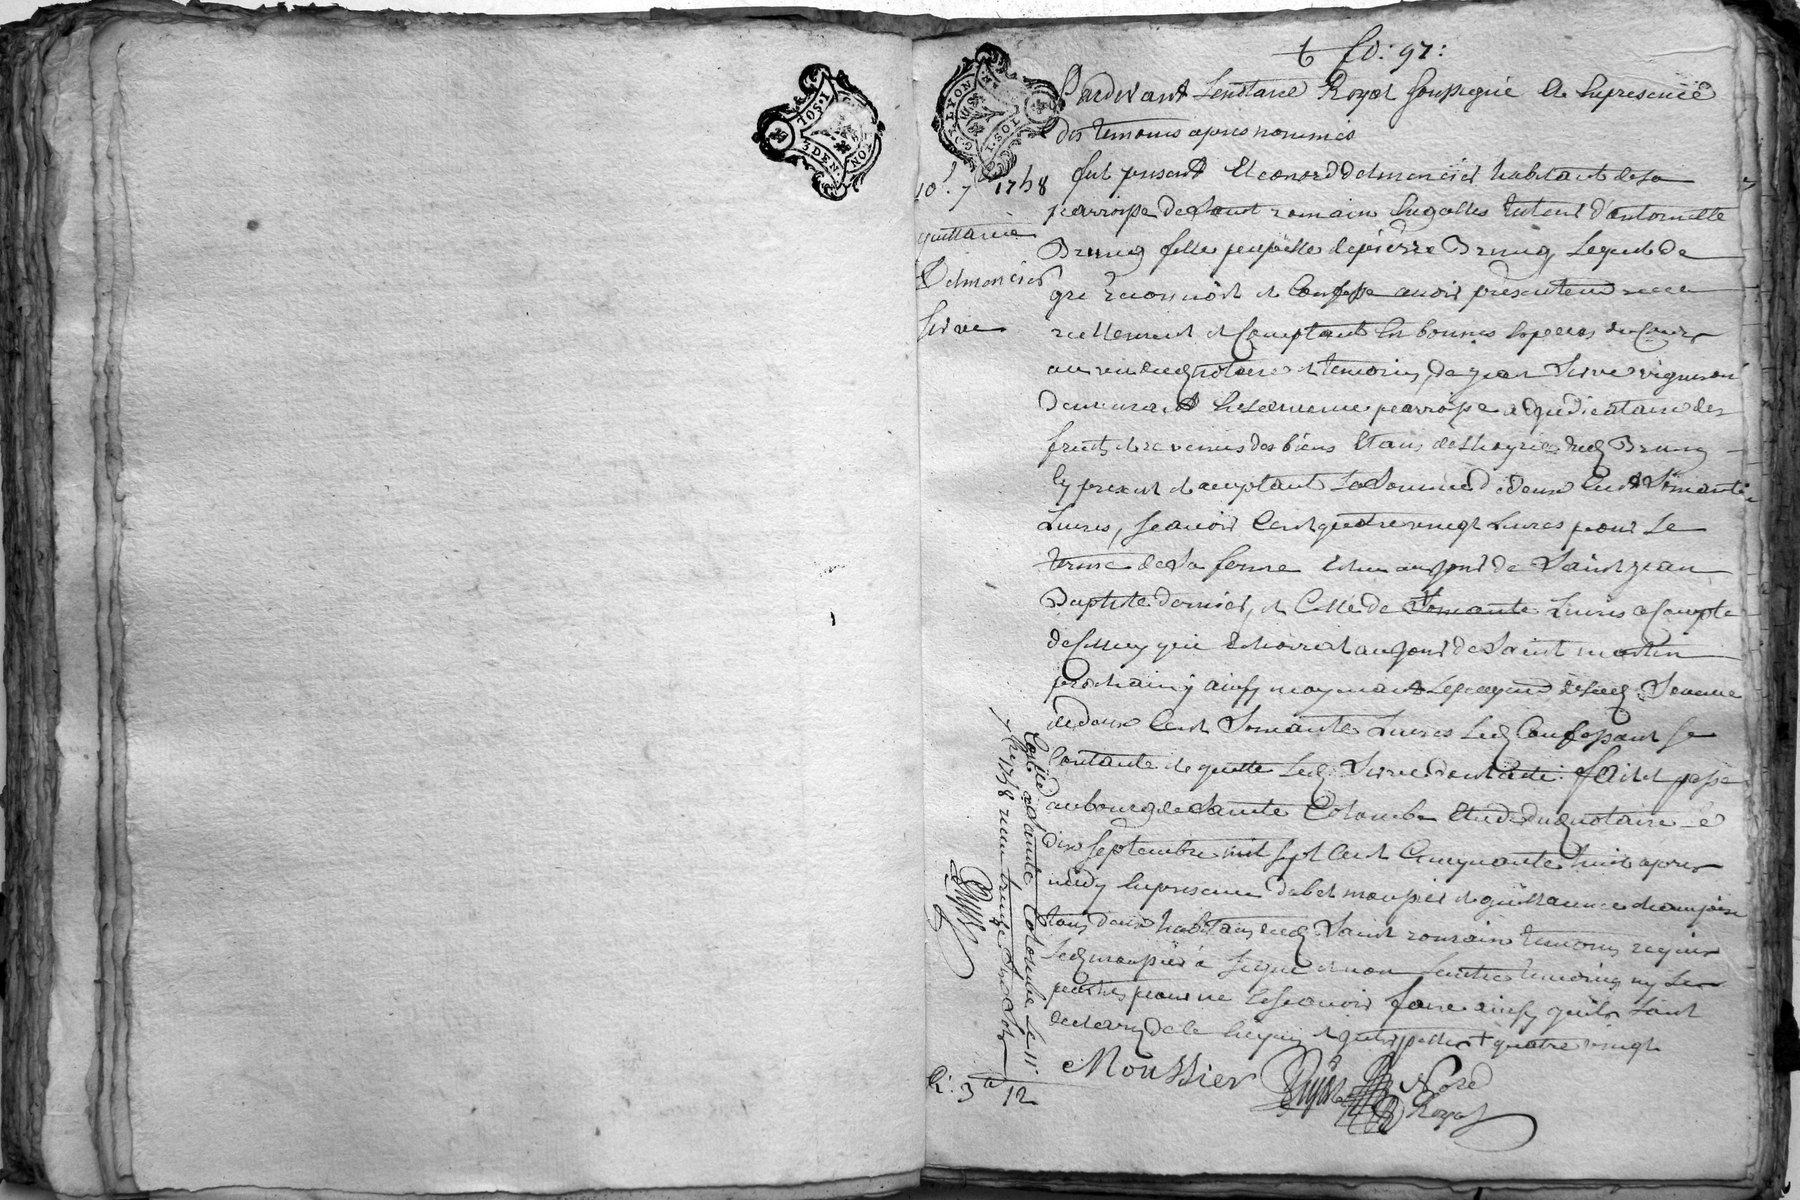 1.SOL
3 DEN
G. LYON
1.SOL
fo: 97:
Pardevant Le notaire Royal soussigné Et En presence
des temoins apres nommés
fut present Leonord Delmencier habitant de La
parroisse de Saint romain En galles tuteur d'antoinette
Bruny fille pupille de pierre Bruny Lequel de
gré reconnoit et Confesse avoir presentement receu
reellement et Comptant En bonnes Especes du Cours
au veu dud notaire et temoins, de jean Sirve vigneron
Demeurant En La meme parroisse adjudicataire des
fruits et revenus des biens Etans de L'hoyrie dud Bruny
Cy present et acceptant La Somme de deux Cent Soixante
Livres, Scavoir Cent quatre vingt Livres pour Le
terme de La ferme Echu au jour de Saint jean
Baptiste dernier, et Celle de Soixante Livres a Compte
de Celluy qui Echoirrat au jour de Saint martin
prochain, ainsy moyenant Le payement de lad Somme
de deux Cent Soixante Livres Led Confessant Se
Contante et quitte Led Sirve dont acte fait et passé
au bourg de Sainte Colombe Etude dud notaire Le
dix Septembre mil Sept Cent Cinquante huit apres
midy En presence d'abel moussier et guillaume
tous deux habitans dud Saint romain temoins requis
Led moussier a Signé et non L'autre temoin ny Les
parties pour ne Le Scavoir faire ainsy qu'ils L'ont
declaré de Ce Enquis et quatre vingt
Moussier
Notre
Royal
10e 7bre 1758
quittance
Delmencier
Sirve
Conllé a Sainte Colombe Le 11
7bre 1758 receu treize Sols
R: 3
12